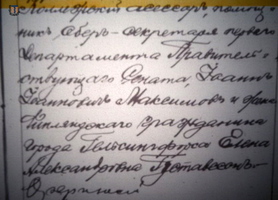 Коллежскій ассесоръ, помощ
никъ Оберъ-секретаря перваго
Департамента Правитель
ствующаго Сената, Іоаннъ
Іоанновичъ Максимовъ и фин
ляндская гражданка
города Гельсингфорса Елена
Александровна Густавсонъ